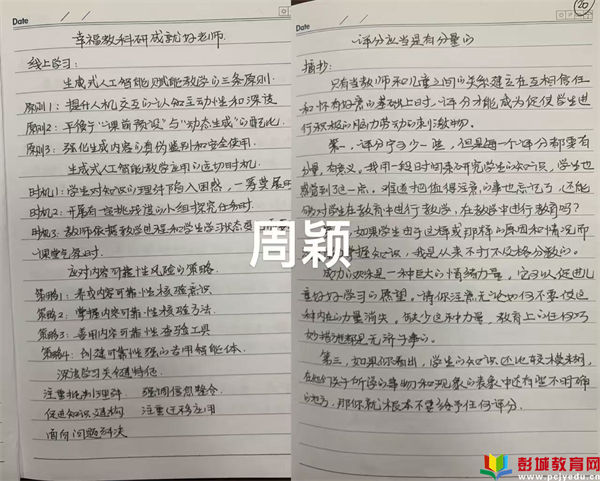 Date
幸福教科研成就好老师
线上学习:
生成式人工智能赋能教学的三条原则
原则1: 提升人机交互的认知互动性和深度
原则2: 平衡"课前预设"与"动态生成"的
原则3: 强化生成内容的真伪鉴别和安全使用.
生成式人工智能教学应用的适切时机:
时机1: 学生对知识的理解陷入困惑,
时机2: 开展有一定挑战度的小组探究任务时.
时机3: 教师依据教学过程和学生学习状态
课堂
应对内容可靠性风险的策略
策略1: 养成内容可靠性核验意识
策略2: 掌握内容可靠性核验方法.
策略3: 善用内容可靠性查验工具
策略4: 创建可靠性强的专用智能体.
深度学习关键特征
注重批判理解 强调信息整合.
促进知识建构 注重迁移应用
面向问题解决
周颖
Date
20
评分应当是有分量的
摘抄:
只有当教师和儿童之间的关系建立在互相信任
和怀有好意的基础上时,评分才能成为促使学生进
行积极的脑力劳动的刺激物.
第一,评分宁可少一些,但是每一个评分都要有
分量,有意义. 我用一段时间来研究学生的知识,学生也
感觉到这一点. 难道把值得注意的事也忘记了,还能
够对学生在教育中进行教学,在教学中进行教育吗?
如果学生由于这样或那样的原因和情况而
掌握知识,我是从来不打不及格分数的.
成功的欢乐是一种巨大的情绪力量,它可以促进儿
童好好学习的愿望. 请你注意无论如何不要使这
种内在的力量消失. 缺少这种力量,教育上的任何巧
妙措施都是无济于事的.
第三,如果你看出,学生的知识还比较模糊,
在他们关于所学的事物和现象的表象中还有些不明确
的地方,那你就根本不要给予任何评分.
彭城教育网
www.pcjyedu.cn